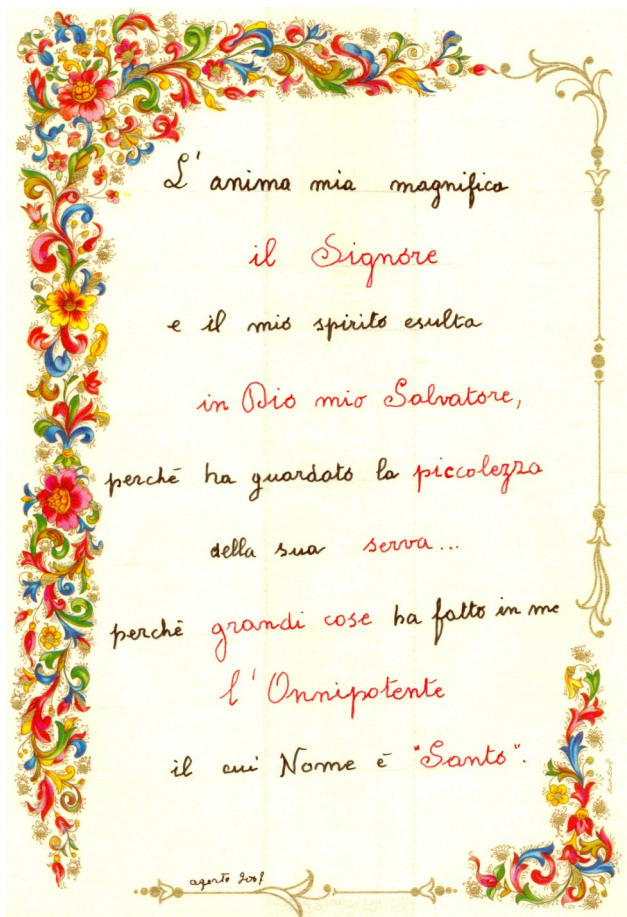 L'anima mia magnifica
il Signore
e il mio spirito esulta
in Dio mio Salvatore,
perchè ha guardato la piccolezza
della sua serva...
perchè grandi cose ha fatto in me
l'Onnipotente
il cui Nome è "Santo".
agosto 2007